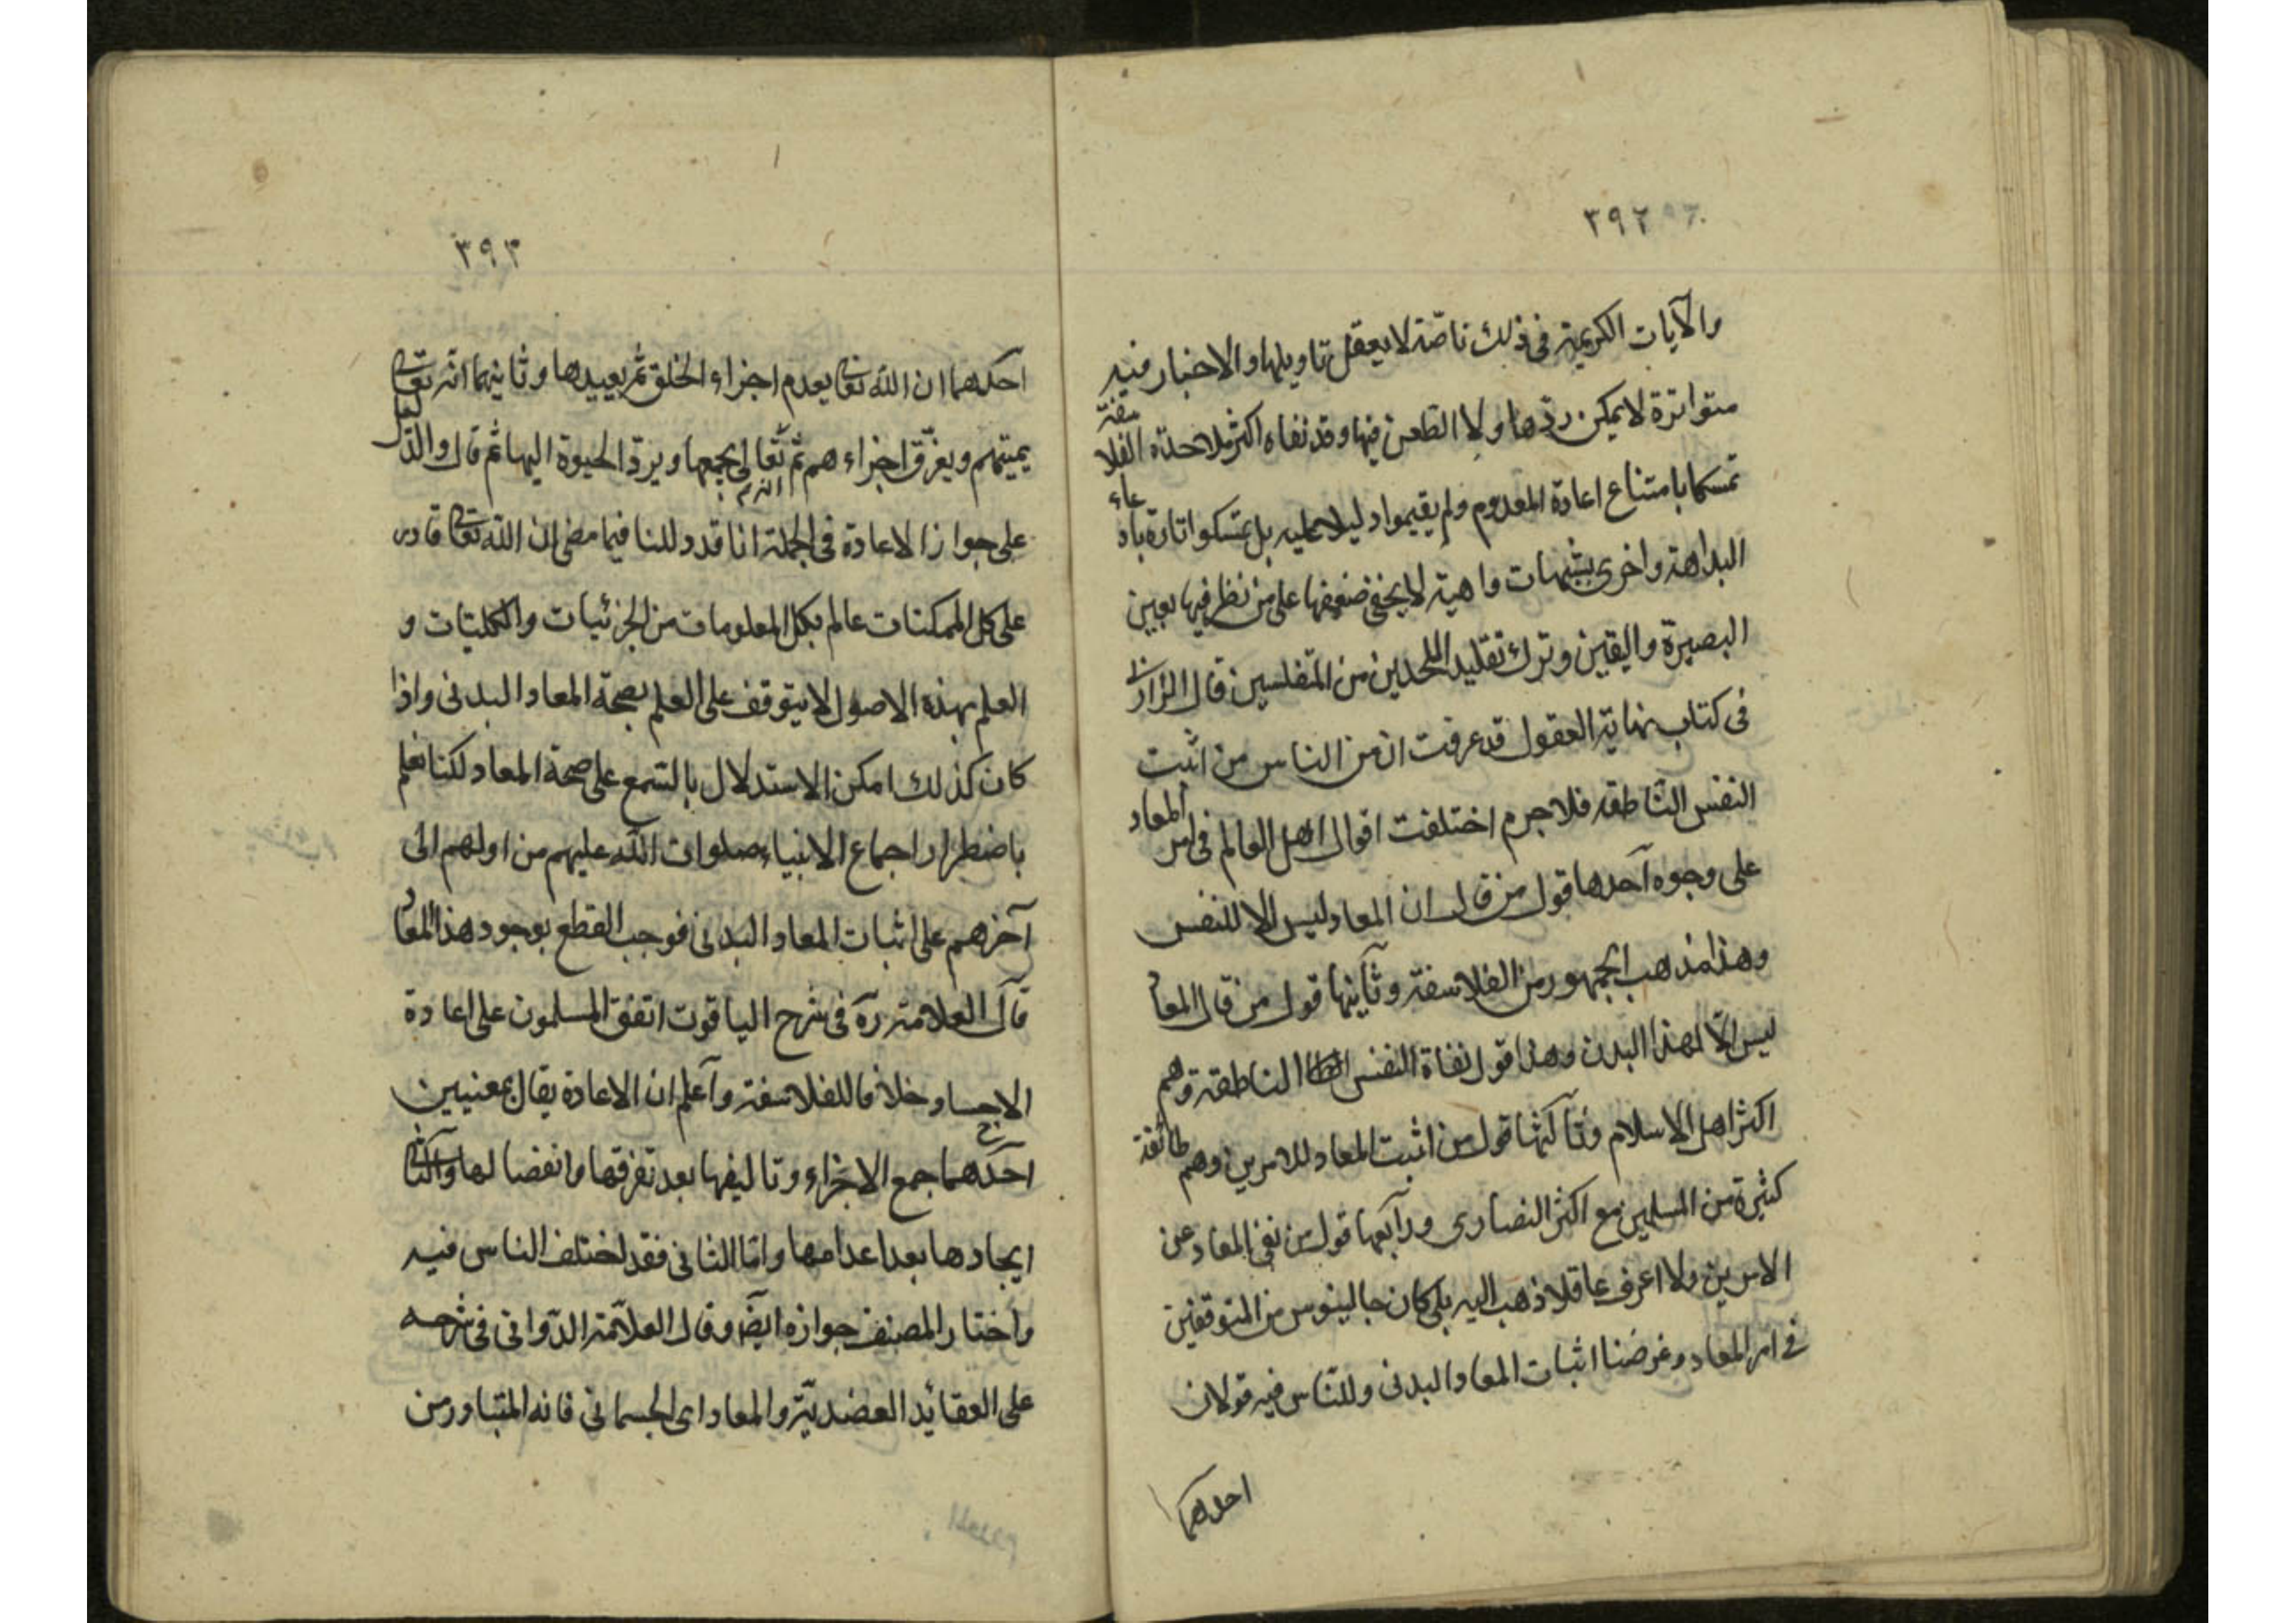 ٣٩٢
والآيات الكريمة فى ذلك ناصّة لا يعقل تاويلها والاخبار فيه
متواترة لا يمكن ردّها ولا الطعن فيها وقد نفاه اكثر ملاحدة الفلاسفة
تمسكا بامتناع اعادة المعدوم ولم يقيموا دليلا عليه بل تمسكوا تارة بادعاء
البداهة واخرى بشبهات واهية لا يخفى ضعفها على من نظر فيها بعين
البصيرة واليقين وترك تقليد الملحدين من المتفلسفين قال الرازى
فى كتاب نهاية العقول قد عرفت ان من الناس من اثبت
النفس الناطقه فلا جرم اختلفت اقوال اهل العالم فى امر المعاد
على وجوه آحدها قول من قال ان المعاد ليس الا للنفس
وهذا مذهب الجمهور من الفلاسفة وثآنيها قول من قال المعاد
ليس الّا لهذا البدن وهذا قول نفاة النفس الناطقة وهم
اكثر اهل الاسلام وثآلثها قول من اثبت المعاد للامرين وهم طائفة
كثيرة من المسلمين مع اكثر النصارى ورآبعها قول من نفى المعاد عن
الامرين ولا اعرف عاقلا ذهب اليه بلى كان جالينوس من المتوقفين
فى امر المعاد وغرضنا اثبات المعاد البدنى وللنّاس فيه قولان
احدهما
٣٩٣
احدهما ان الله تعالى يعدم اجزاء الخلق ثم يعيدها وثانيهما انّه تعالى
يميتهم ويفرّق اجزاءهم ثم انه تعالى يجمعها ويردّ الحيوة اليها ثم قال والدليل
على جواز الاعادة فى الجملة انا قد دللنا فيما مضى ان الله تعالى قادر
على كل الممكنات عالم بكل المعلومات من الجزئيات والكليّات و
العلم بهذه الاصول لا يتوقف على العلم بصحة المعاد البدنى واذا
كان كذلك امكن الاستدلال بالسّمع على صحة المعاد لكنا نعلم
باضطرار اجماع الانبياء صلوات الله عليهم من اولهم الى
آخرهم على اثبات المعاد البدنى فوجب القطع بوجود هذا المعاد
قآل العلامة ره فى شرح الياقوت اتفق المسلمون على اعادة
الاجساد خلافا للفلاسفة وآعلم ان الاعادة يقال بمعنيين
آحدهما جمع الاجزاء وتاليفها بعد تفرقها وانفصالها والثانى
ايجادها بعد اعدامها وامّا الثانى فقد اختلف الناس فيه
واختار المصنف جوازه ايضا وقال العلاّمة الدّوانى فى شرحه
على العقائد العضديّة والمعاد اى الجسمانى فانه المتبادر من